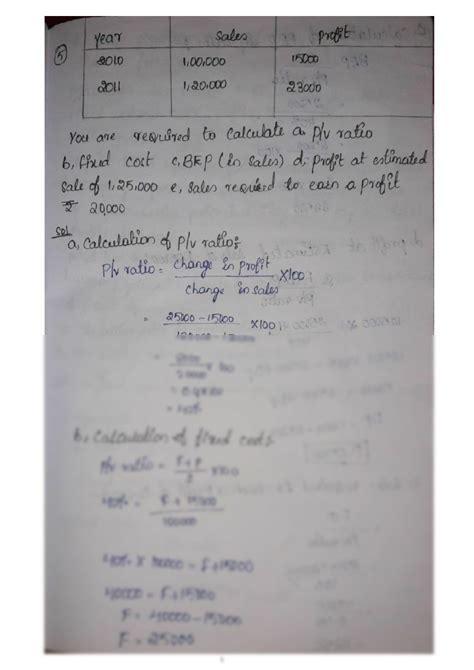 5
year Sales profit
2010 1,00,000 15000
2011 1,20,000 23000
You are required to calculate a, P/v ratio
b, fixed cost c, BEP (in sales) d, profit at estimated
sale of 1,25,000 e, sales required to earn a profit
₹ 20,000
Sol
a, calculation of P/v ratio:
P/v ratio = change in profit X100
change in sales
= 25000 - 15000 X100
= X100
b, Calculation of fixed costs
P/v ratio = F+P X100
40% = F + 15000
100000
40% X 100000 = F+15000
40000 = F+15000
F = 40000-15000
F = 25000